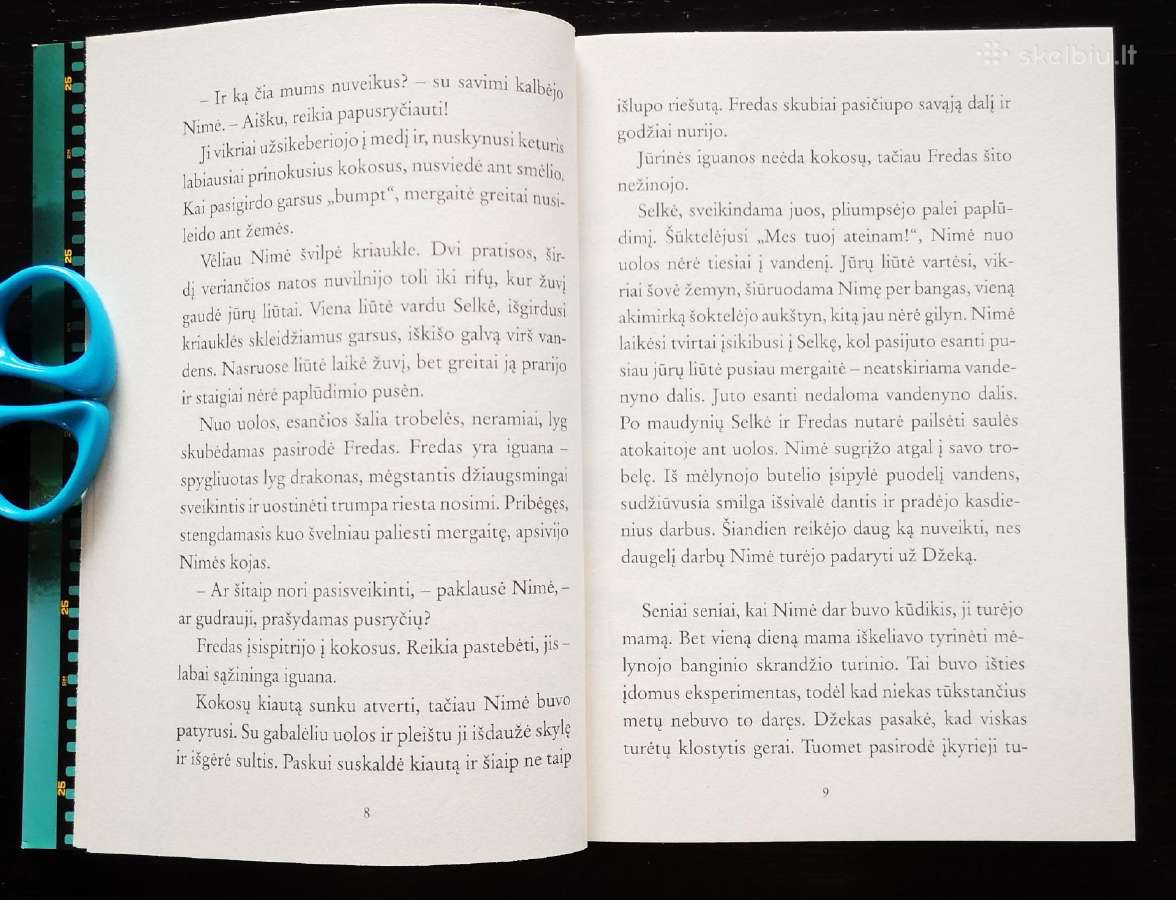 – Ir ką čia mums nuveikus? – su savimi kalbėjo
Nimė. – Aišku, reikia papusryčiauti!
Ji vikriai užsikeberiojo į medį ir, nuskynusi keturis
labiausiai prinokusius kokosus, nusviedė ant smėlio.
Kai pasigirdo garsus „bumpt“, mergaitė greitai nusi-
leido ant žemės.
Vėliau Nimė švilpė kriaukle. Dvi pratisos, šir-
dį veriančios natos nuvilnijo toli iki rifų, kur žuvį
gaudė jūrų liūtai. Viena liūtė vardu Selkė, išgirdusi
kriauklės skleidžiamus garsus, iškišo galvą virš van-
dens. Nasruose liūtė laikė žuvį, bet greitai ją prarijo
ir staigiai nėrė paplūdimio pusėn.
Nuo uolos, esančios šalia trobelės, neramiai, lyg
skubėdamas pasirodė Fredas. Fredas yra iguana –
spygliuotas lyg drakonas, mėgstantis džiaugsmingai
sveikintis ir uostinėti trumpa riesta nosimi. Pribėgęs,
stengdamasis kuo švelniau paliesti mergaitę, apsivijo
Nimės kojas.
– Ar šitaip nori pasisveikinti, – paklausė Nimė, –
ar gudrauji, prašydamas pusryčių?
Fredas įsispitrijo į kokosus. Reikia pastebėti, jis –
labai sąžininga iguana.
Kokosų kiautą sunku atverti, tačiau Nimė buvo
patyrusi. Su gabalėliu uolos ir pleištu ji išdaužė skylę
ir išgėrė sultis. Paskui suskaldė kiautą ir šiaip ne taip
8
išlupo riešutą. Fredas skubiai pasičiupo savąją dalį ir
godžiai nurijo.
Jūrinės iguanos neėda kokosų, tačiau Fredas šito
nežinojo.
Selkė, sveikindama juos, pliumpsėjo palei paplū-
dimį. Šūktelėjusi „Mes tuoj ateinam!“, Nimė nuo
uolos nėrė tiesiai į vandenį. Jūrų liūtė vartėsi, vik-
riai šovė žemyn, šiūruodama Nimę per bangas, vieną
akimirką šoktelėjo aukštyn, kitą jau nėrė gilyn. Nimė
laikėsi tvirtai įsikibusi į Selkę, kol pasijuto esanti pu-
siau jūrų liūtė pusiau mergaitė – neatskiriama vande-
nyno dalis. Juto esanti nedaloma vandenyno dalis.
Po maudynių Selkė ir Fredas nutarė pailsėti saulės
atokaitoje ant uolos. Nimė sugrįžo atgal į savo tro-
belę. Iš mėlynojo butelio įsipylė puodelį vandens,
sudžiūvusia smilga išsivalė dantis ir pradėjo kasdie-
nius darbus. Šiandien reikėjo daug ką nuveikti, nes
daugelį darbų Nimė turėjo padaryti už Džeką.
Seniai seniai, kai Nimė dar buvo kūdikis, ji turėjo
mamą. Bet vieną dieną mama iškeliavo tyrinėti mė-
lynojo banginio skrandžio turinio. Tai buvo išties
įdomus eksperimentas, todėl kad niekas tūkstančius
metų nebuvo to daręs. Džekas pasakė, kad viskas
turėtų klostytis gerai. Tuomet pasirodė įkyrieji tu-
9
skelbiu.lt
25
25
25
25